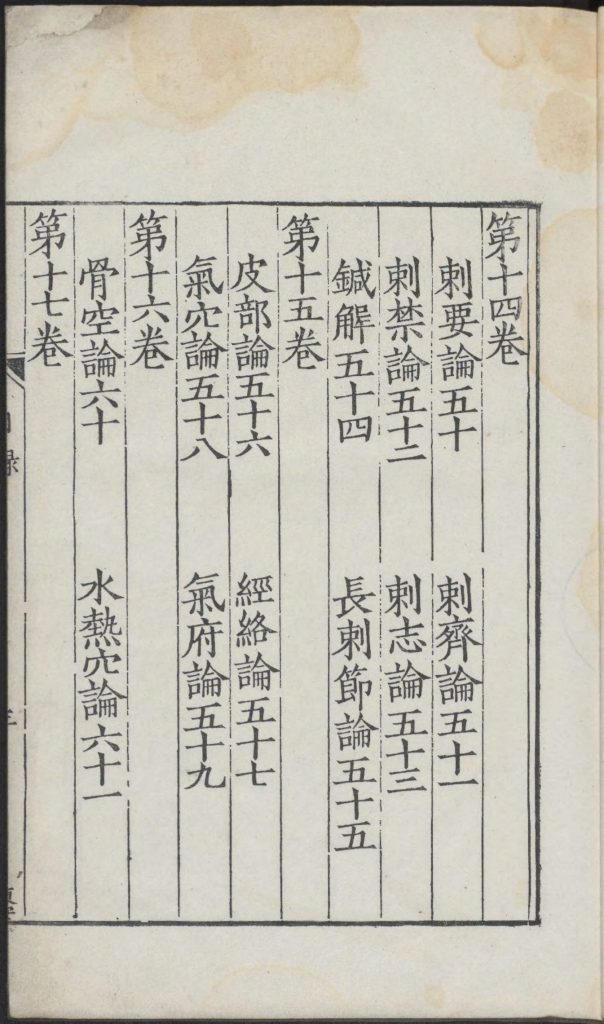 第十四卷
刺要論五十　刺齊論五十一
刺禁論五十二　刺志論五十三
鍼解五十四　長刺節論五十五
第十五卷
皮部論五十六　經絡論五十七
氣穴論五十八　氣府論五十九
第十六卷
骨空論六十　水熱穴論六十一
第十七卷